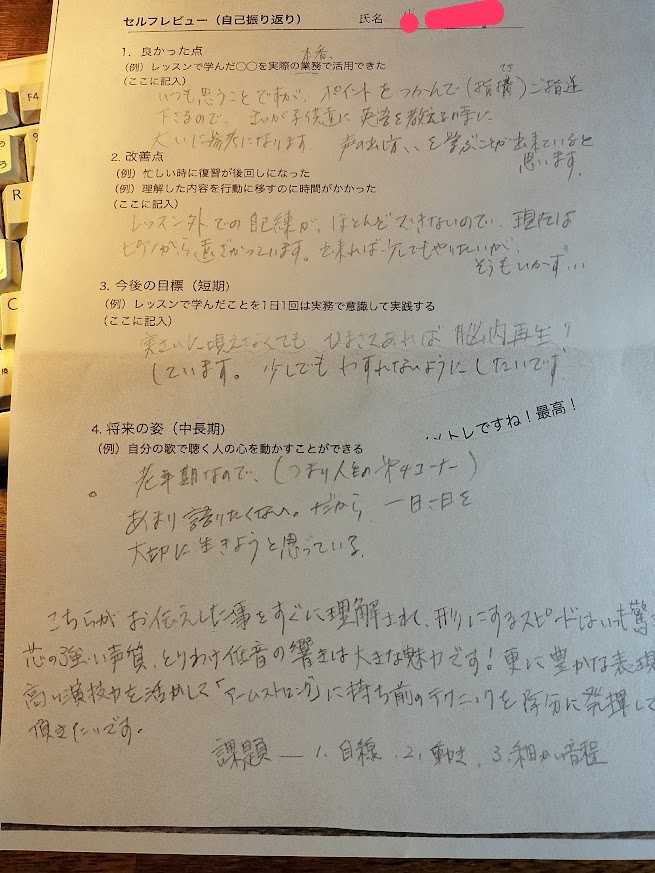 セルフレビュー（自己振り返り） 氏名
1. 良かった点
（例）レッスンで学んだ〇〇を実際の業務で活用できた
（ここに記入）
いつも思うことですが、ポイントをつかんで（指摘）ご指導
下さるので、私が子供達に 英語を教える時に
大いに参考になります。 声の出し方、、を学ぶことが出来ていると
思います。
2. 改善点
（例）忙しい時に復習が後回しになった
（例）理解した内容を行動に移すのに時間がかかった
（ここに記入）
レッスン外での自練が、ほとんどできないので、現在は
ピアノから遠ざかっています。出来れば少しでもやりたいが、
そうもいかず…
3. 今後の目標（短期）
（例）レッスンで学んだことを1日1回は実務で意識して実践する
（ここに記入）
なくても ひまさえあれば "脳内再生"
しています。少しでもわすれないようにしたいです
4. 将来の姿（中長期）
トレですね！最高！
（例）自分の歌で聴く人の心を動かすことができる
老年期なので、（つまり人生の第4コーナー）
あまり語りたくない。だから、一日一日を
大切に生きようと思っている。
こちらが お伝えした事をすぐに理解されて、形にするスピードはいつも驚
芯の強い声質、とりわけ低音の響きは大きな魅力です！更に豊かな表現
高い演技力を活かして「アームストロング」に持ち前のテクニックを存分に発揮して
頂きたいです。
課題 — 1. 目線 2. 動き 3. 細かい音程